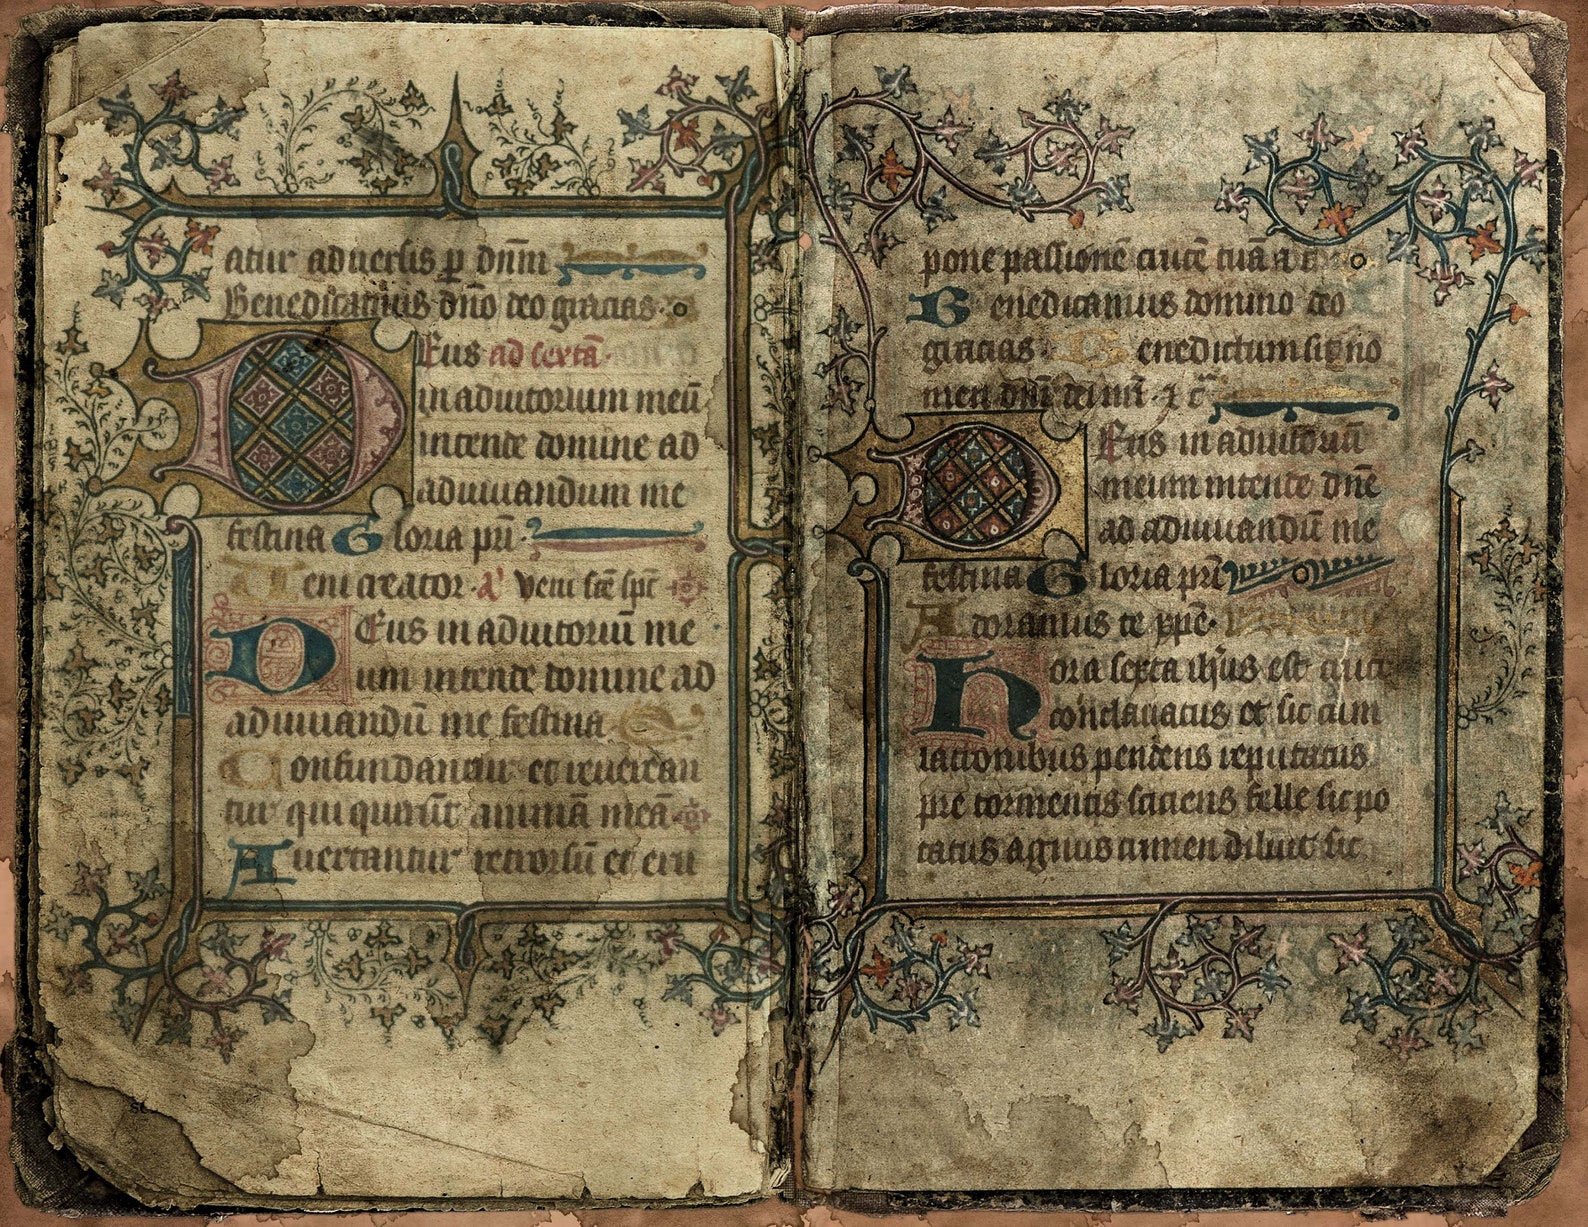 atur aduersis p dnm
Benedicamus dno deo gracias
Deus ad sextā
in adiutorium meū
intende domine ad
adiuuandum me
festina Gloria pri
Veni creator a' veni sce spc
Deus in adiutoriū me
um intende domine ad
adiuuandū me festina
Confundantur et reuerean
tur qui querūt animā meā
Auertantur retrorsū et eru
pone passionē crucē tuā
Benedicamus domino deo
gracias Benedictum sit no
men dni
Deus in adiutoriū
meum intende dnē
ad adiuuandū me
festina Gloria pri
Adoramus te xpē
Hora sexta ihus est cruci
conclauatus et sic cum
lationibus pendens reputatus
pre tormentis sitiens felle sic po
tatus agnus crimen diluit sic